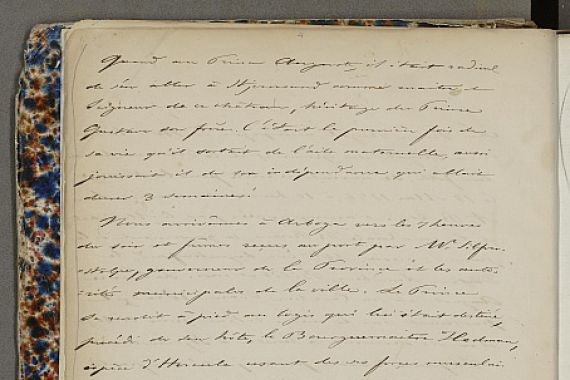 Quand au Prince Auguste, il était radieux
de s'en aller à Stjernsund comme maître et
Seigneur de ce château, héritage du Prince
Gustave son frère. C'était la première fois de
sa vie qu'il sortait de l'aile maternelle, aussi
jouissait il de son indépendance qui allait
durer 3 semaines!
Nous arrivâmes à Arboga vers les 7 heures
du soir et fûmes reçus au pont par Mr. Silfver
stolpe, gouverneur de la Province et les auto-
rités municipales de la ville. Le Prince
se rendit à pied au logis qui lui était destiné,
précédé de son hôte, le Bourguemaitre Hedman,
espèce d'Hercule usant de ses forces musculai